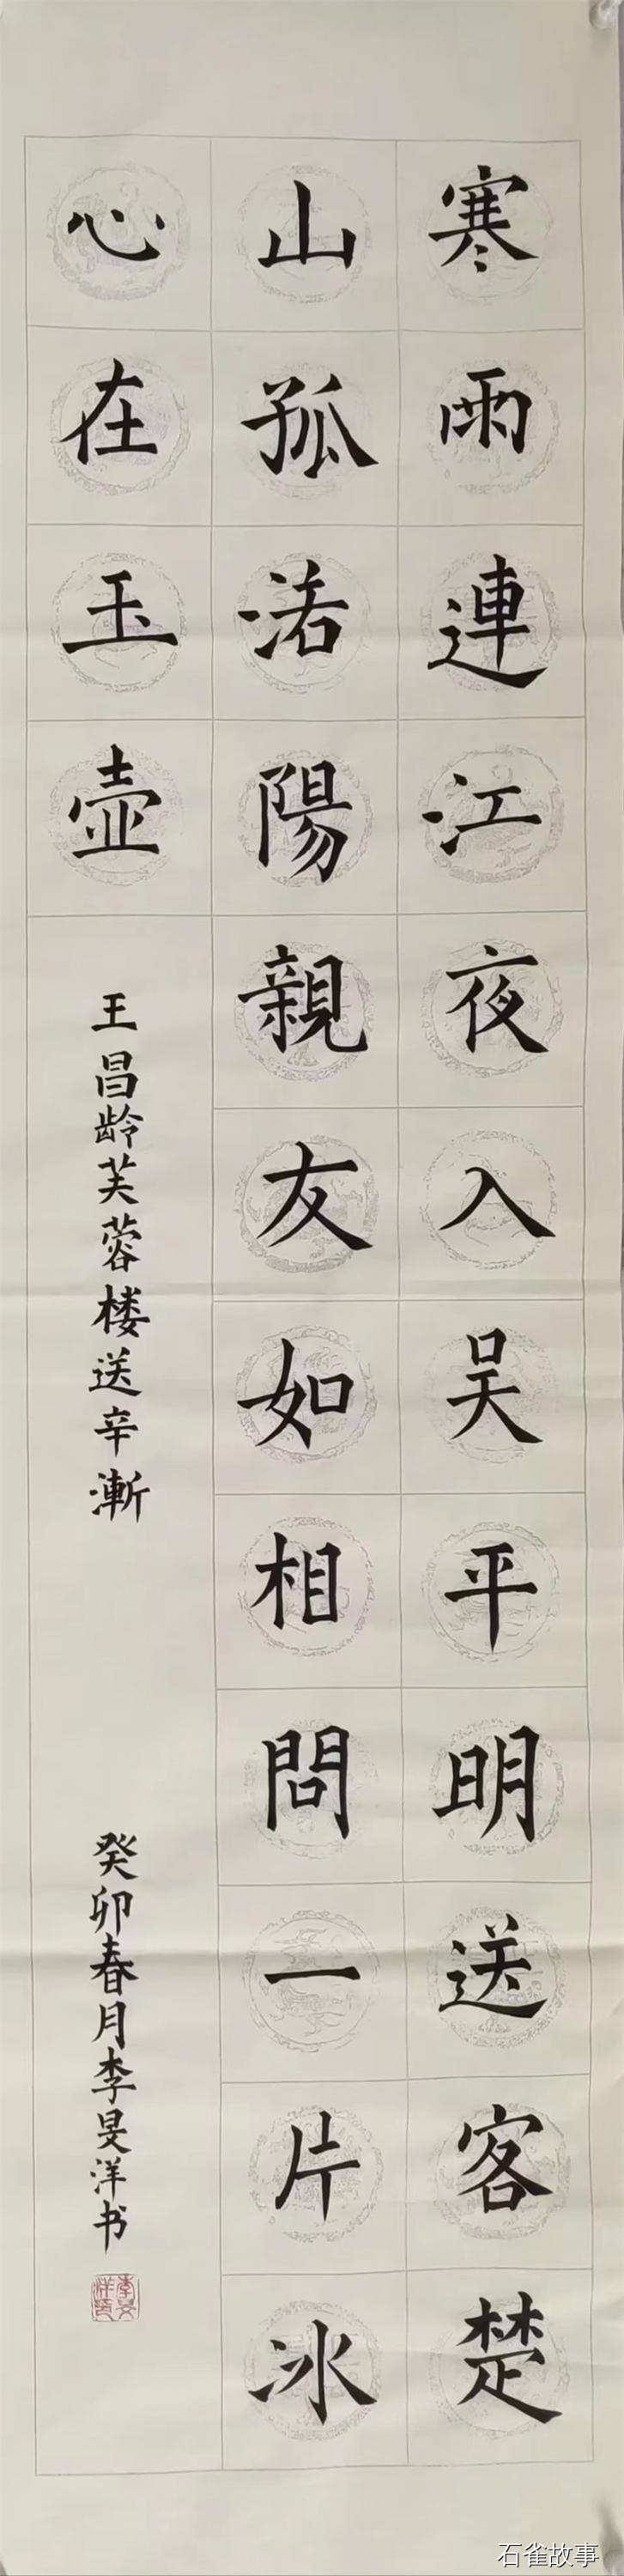 寒雨連江夜入吴平明送客楚
山孤洛陽親友如相問一片冰
心在玉壶
王昌龄芙蓉楼送辛漸
癸卯春月李旻洋书
李旻洋印
石雀故事